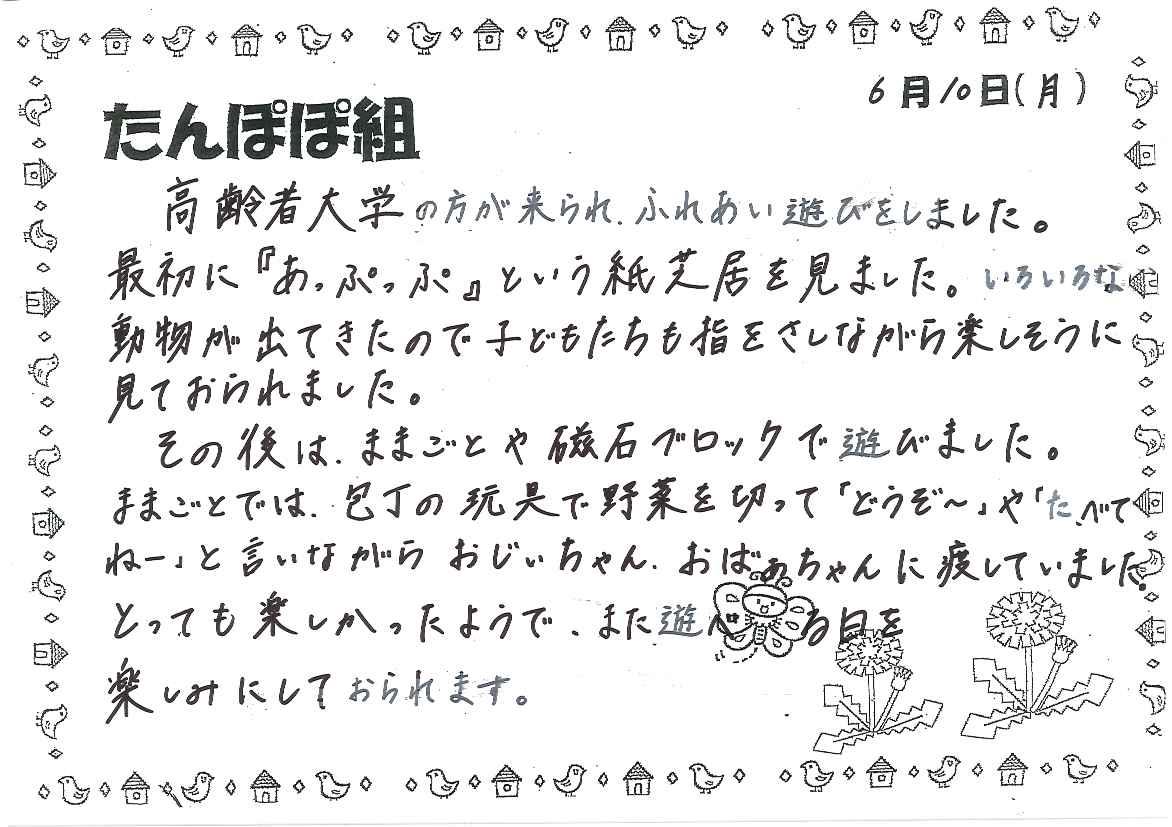 6月10日(月)
たんぽぽ組
高齢者大学の方が来られ、ふれあい遊びをしました。
最初に『あっぷっぷ』という紙芝居を見ました。いろいろな
動物が出てきたので子どもたちも指をさしながら楽しそうに
見ておられました。
その後は、ままごとや磁石ブロックで遊びました。
ままごとでは、包丁の玩具で野菜を切って「どうぞ〜」や「たべて
ねー」と言いながらおじぃちゃん、おばぁちゃんに疲していました。
とっても楽しかったようで、また遊べる日を
楽しみにしておられます。